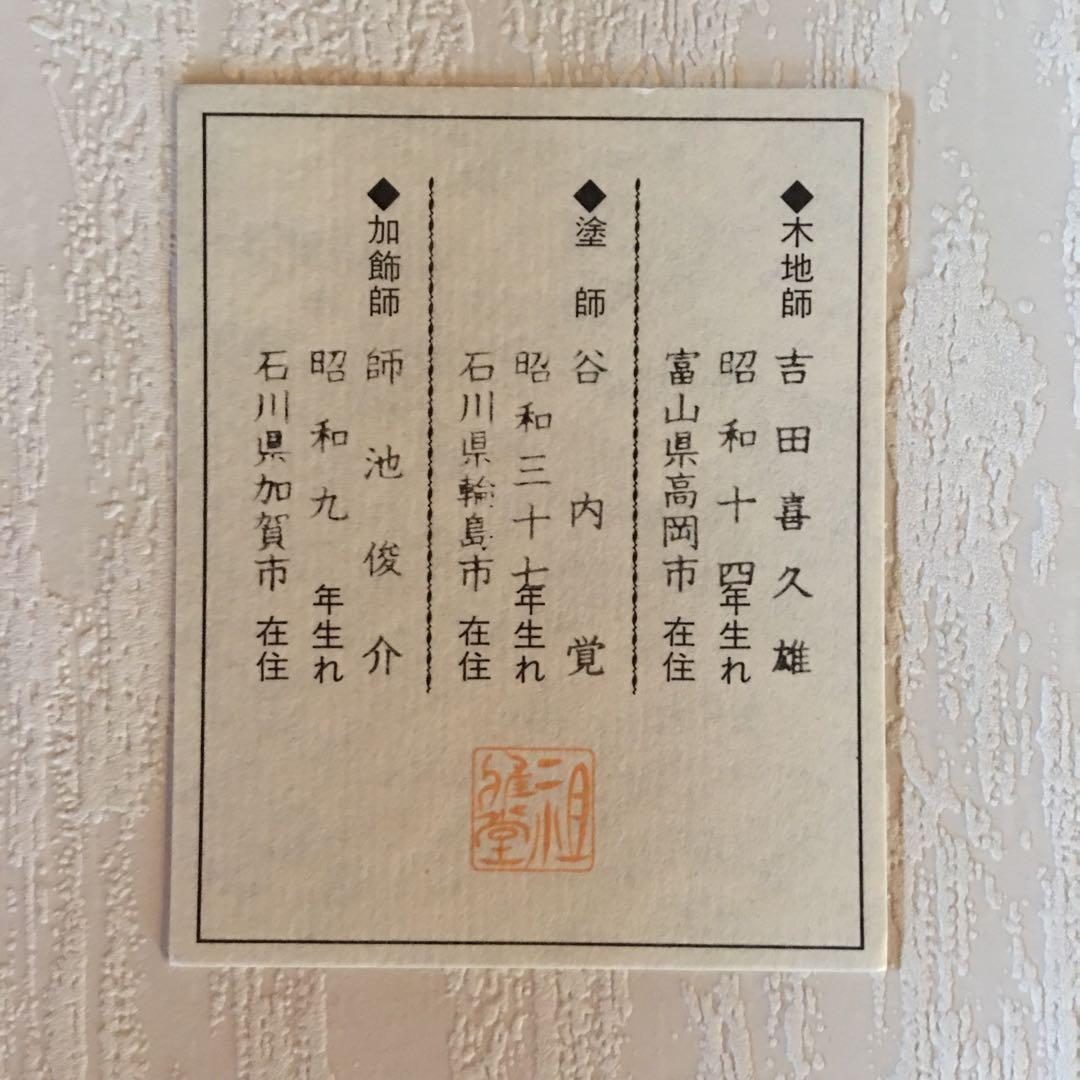 ◆木地師 吉田喜久雄
昭和十四年生れ
富山県高岡市 在住
◆塗 師 谷内 覚
昭和三十七年生れ
石川県輪島市 在住
◆加飾師 師池俊介
昭和九 年生れ
石川県加賀市 在住